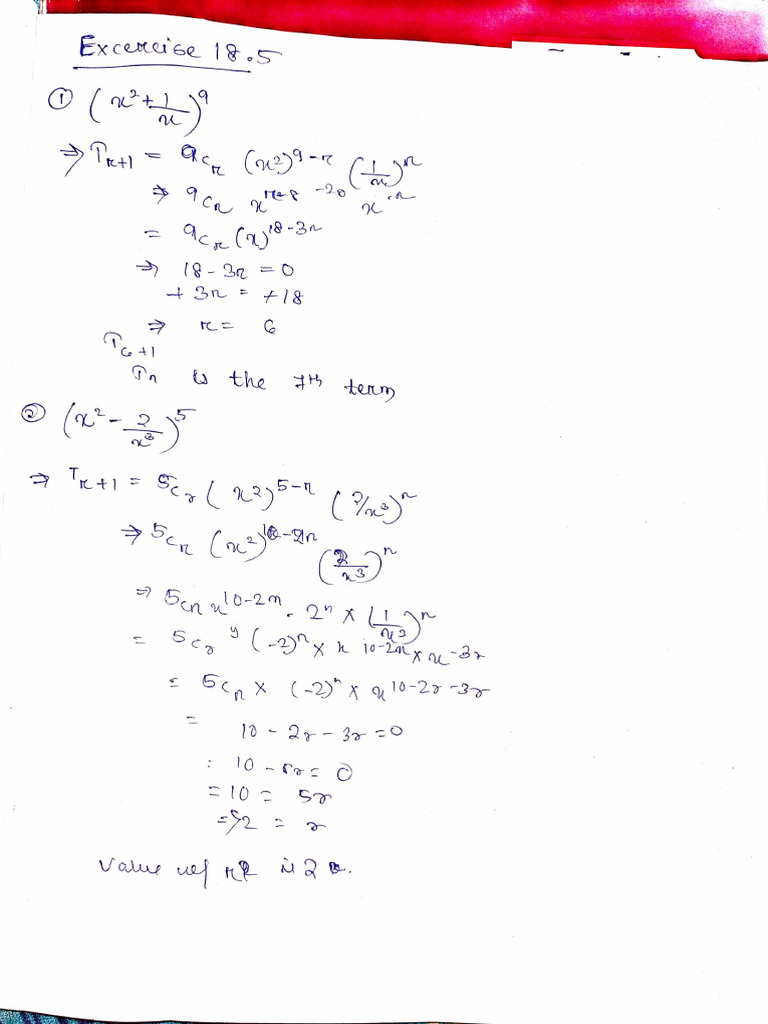 Excercise 18.5
① (x² + 1/x)⁹
⇒ Tr+1 = 9Cr (x²)⁹⁻ʳ (1/x)ʳ
⇒ 9Cr x¹⁸⁻²ʳ x⁻ʳ
= 9Cr (x)¹⁸⁻³ʳ
⇒ 18 - 3r = 0
+ 3r = +18
⇒ r = 6
T6+1
Tr is the 7th term
② (x² - 2/x³)⁵
⇒ Tr+1 = 5Cr (x²)⁵⁻ʳ (2/x³)ʳ
⇒ 5Cr (x²)¹⁰⁻²ʳ (2/x³)ʳ
⇒ 5Cr x¹⁰⁻²ʳ . 2ʳ × (1/x³)ʳ
= 5Cr (-2)ʳ × x¹⁰⁻²ʳ × x⁻³ʳ
= 5Cr × (-2)ʳ × x¹⁰⁻²ʳ⁻³ʳ
= 10 - 2r - 3r = 0
: 10 - 5r = 0
= 10 = 5r
= 2 = r
Value of r is 2